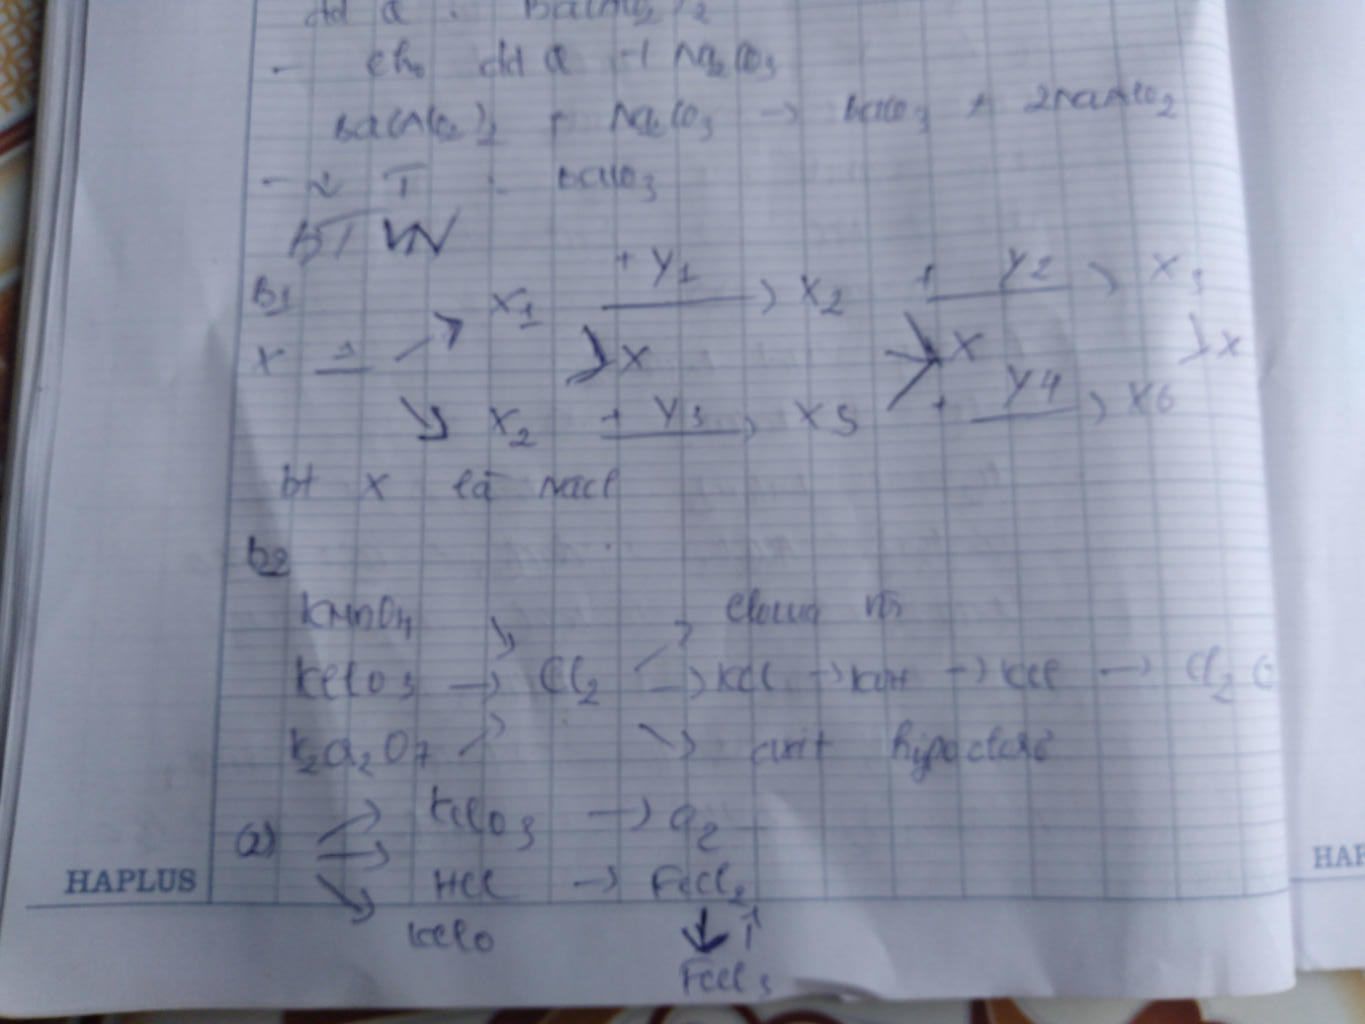 dd Q : Ba(AlO2)2
- Cho dd Q + Na2CO3
Ba(AlO2)2 + Na2CO3 → BaCO3 + 2NaAlO2
- ↓ T : BaCO3
BT VN
B1
X1 + Y1 → X2 + Y2 → X3
X → X X X
X2 + Y3 → X5 + Y4 → X6
bt X là NaCl
b2
KMnO4 clorua vôi
KClO3 → Cl2 → KCl → KOH → KCl → Cl2 (
K2Cr2O7 axit hipoclorơ
(2) KClO3 → O2
HCl → FeCl2
KClO ↓↑
FeCl3
HAPLUS
HAP